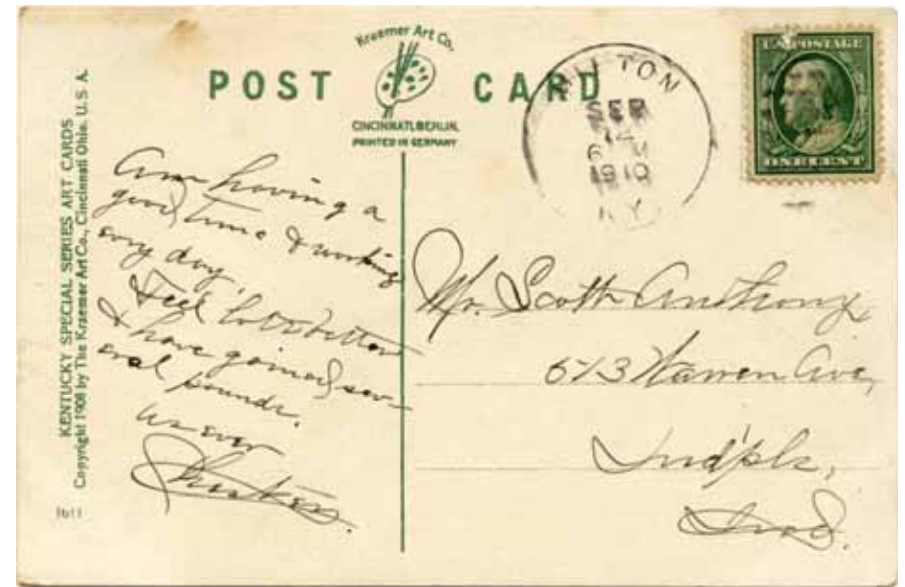 KENTUCKY SPECIAL SERIES ART CARDS
Copyright 1908 by The Kraemer Art Co., Cincinnati Ohio. U. S. A.
1611
POST CARD
Kraemer Art Co.
CINCINNATI. BERLIN.
PRINTED IN GERMANY
MILTON
SEP
14
6 M
1910
KY.
U.S. POSTAGE
ONE CENT
Am having a
good time & working
every day.
Feel lots better
& have gained sev-
eral pounds.
As ever
Mr. Scott Anthony,
Warren Ave,
Ind'pls,
Ind.